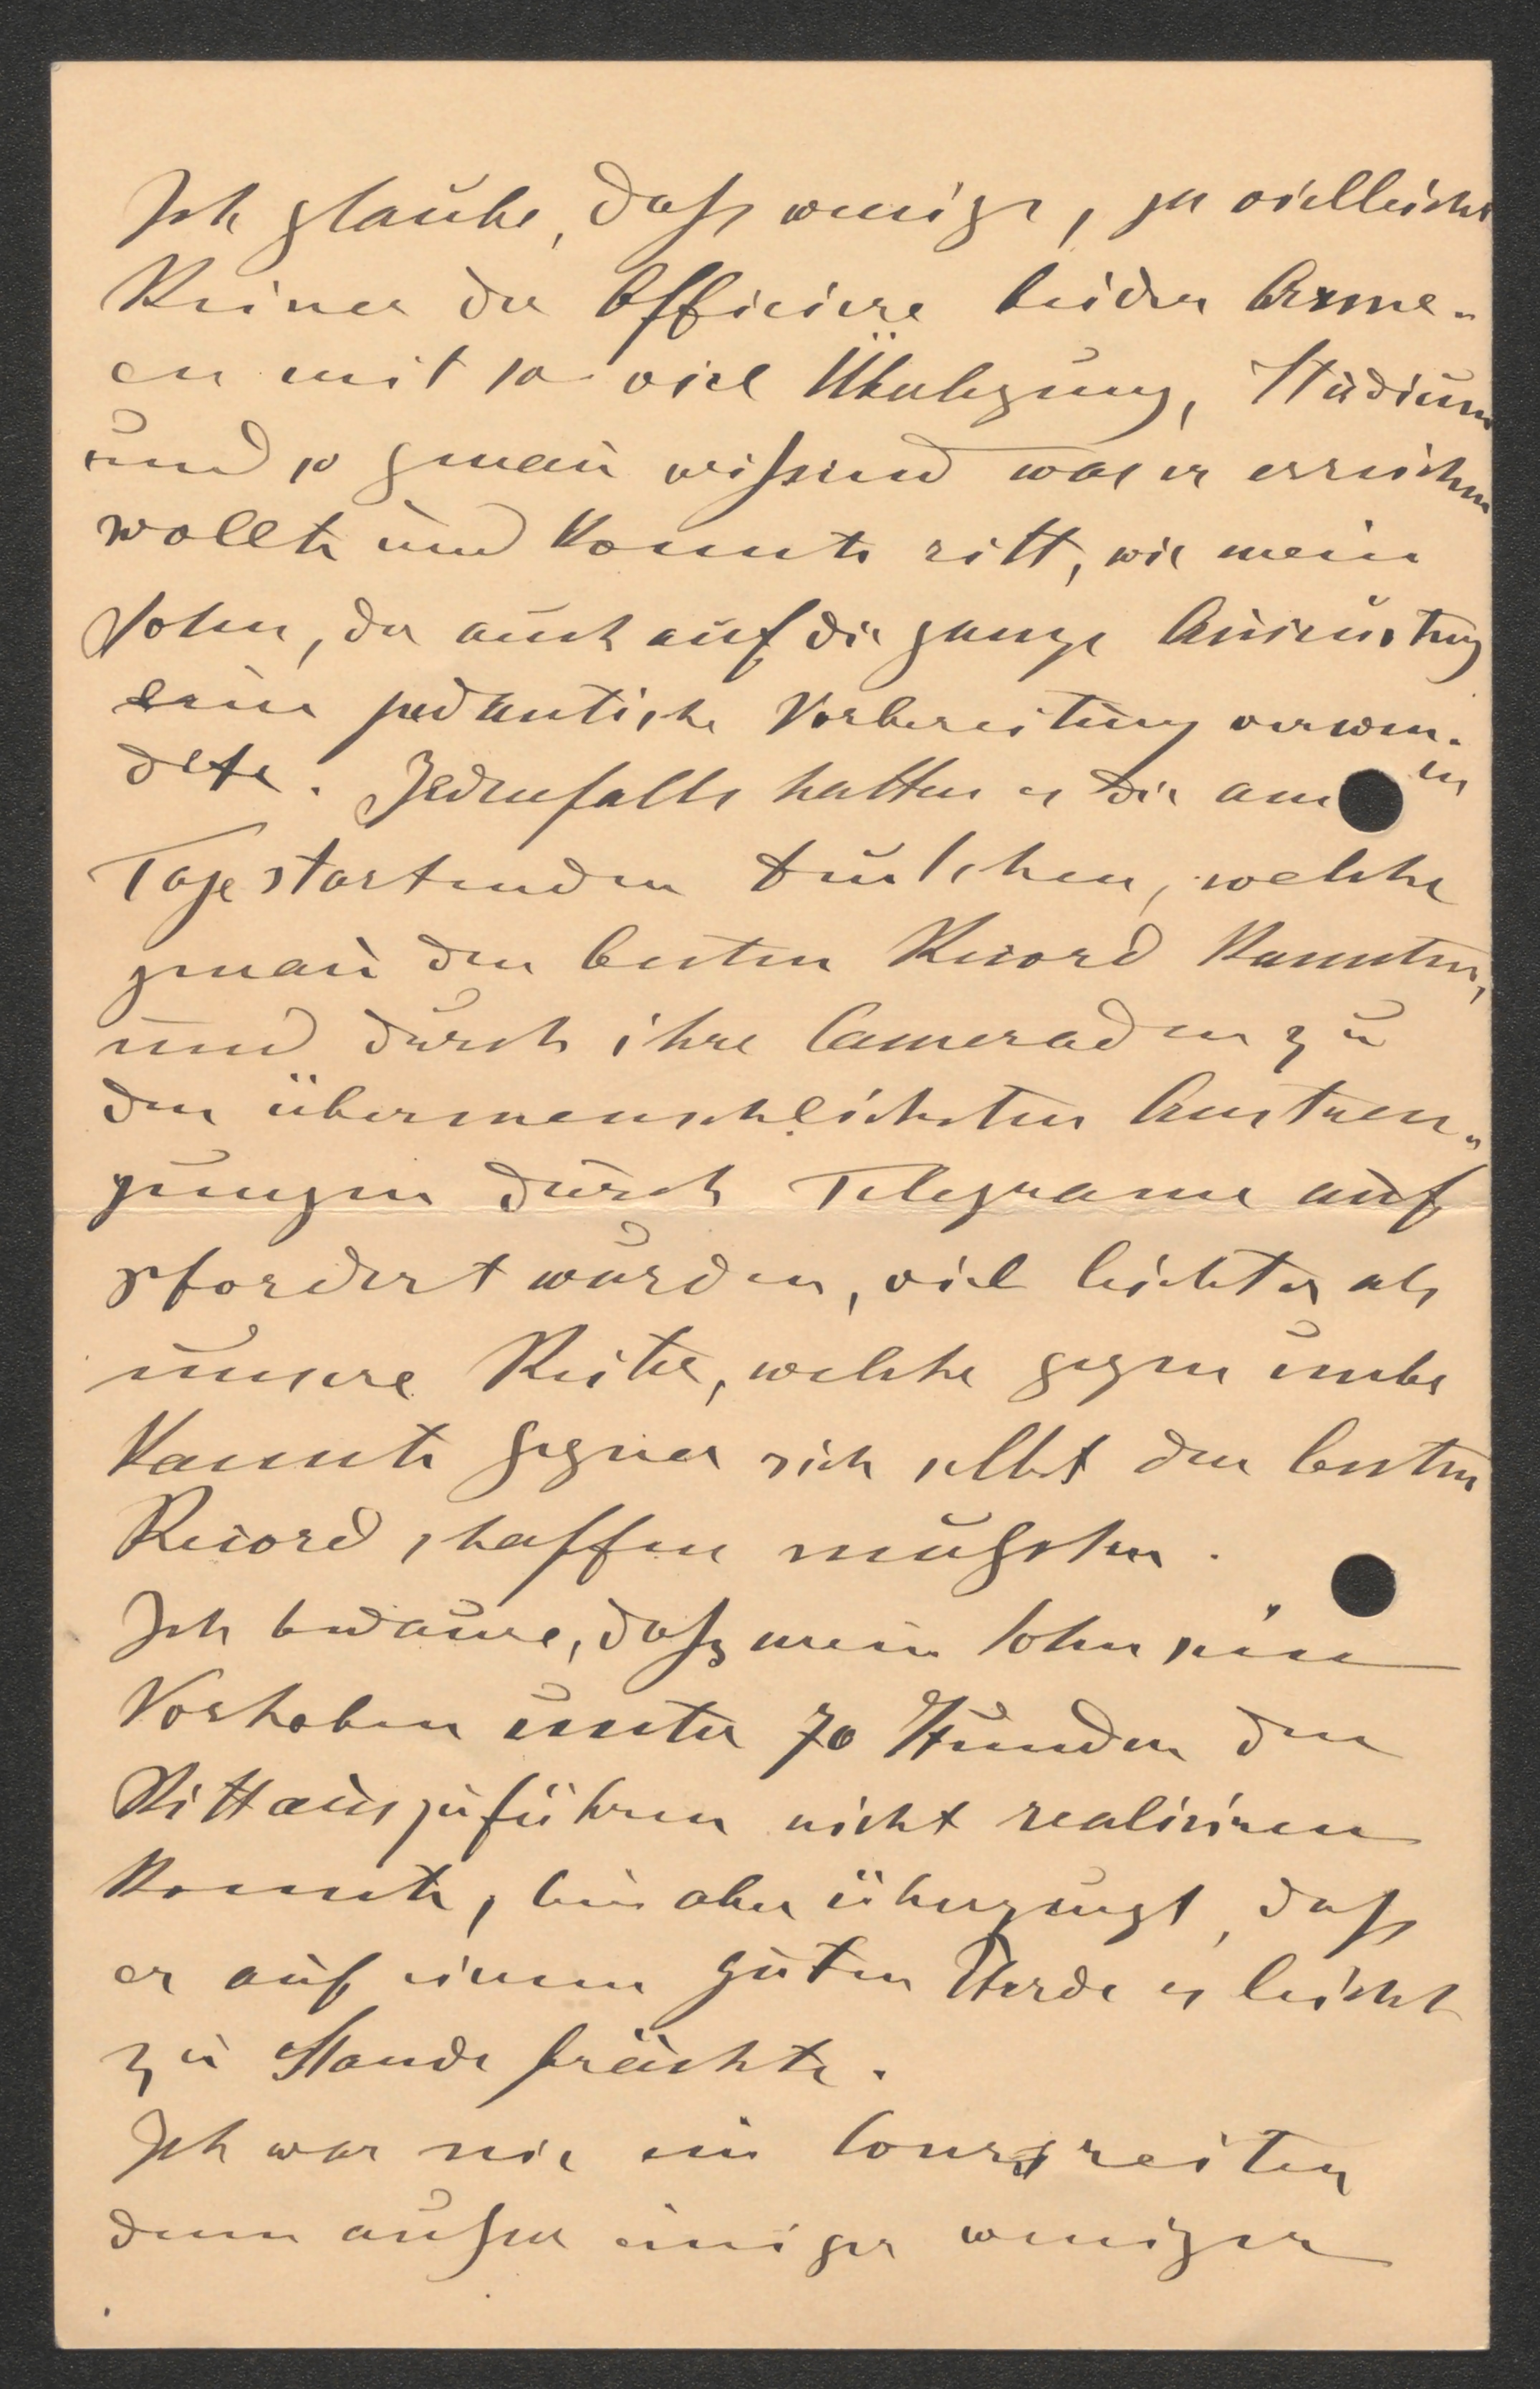 Ich glaube, daß wenige, ja vielleicht
Keiner der Officiere beider Arme-
en mit so viel Überlegung, Studium
und so genau wissend was er erreichen
wollte und konnte ritt, wie mein
Sohn, der auch auf die ganze Ausrüstung
eine pedantische Vorbereitung verwen-
dete. Jedenfalls hatten es die am
Tage startenden Deutschen, welche
genau den besten Record kannten,
und durch ihre Cameraden zu
den übermenschlichsten Anstren-
gungen durch Telegrame auf
gefordert wurden, viel leichter als
unsere Reiter, welche gegen unbe
kannte Gegner sich selbst den besten
Record schaffen mußten.
Ich bedaure, daß mein Sohn sein
Vorhaben unter 70 Stunden den
Ritt auszuführen nicht realisiren
konnte, bin aber überzeugt, daß
er auf einem guten Pferde es leicht
zu Stande brächte.
Ich war nie ein Coursreiter
denn außer einiger weniger